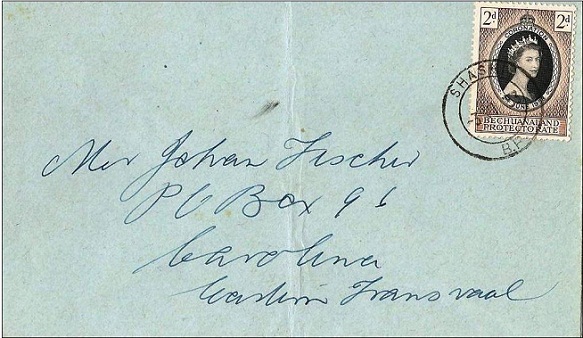 2d 2d
CORONATION
2 JUNE 1953
BECHUANALAND
PROTECTORATE
SHAS
B.P.
Mnr Johan Fischer
P O Box 96
Carolina
Eastern Transvaal